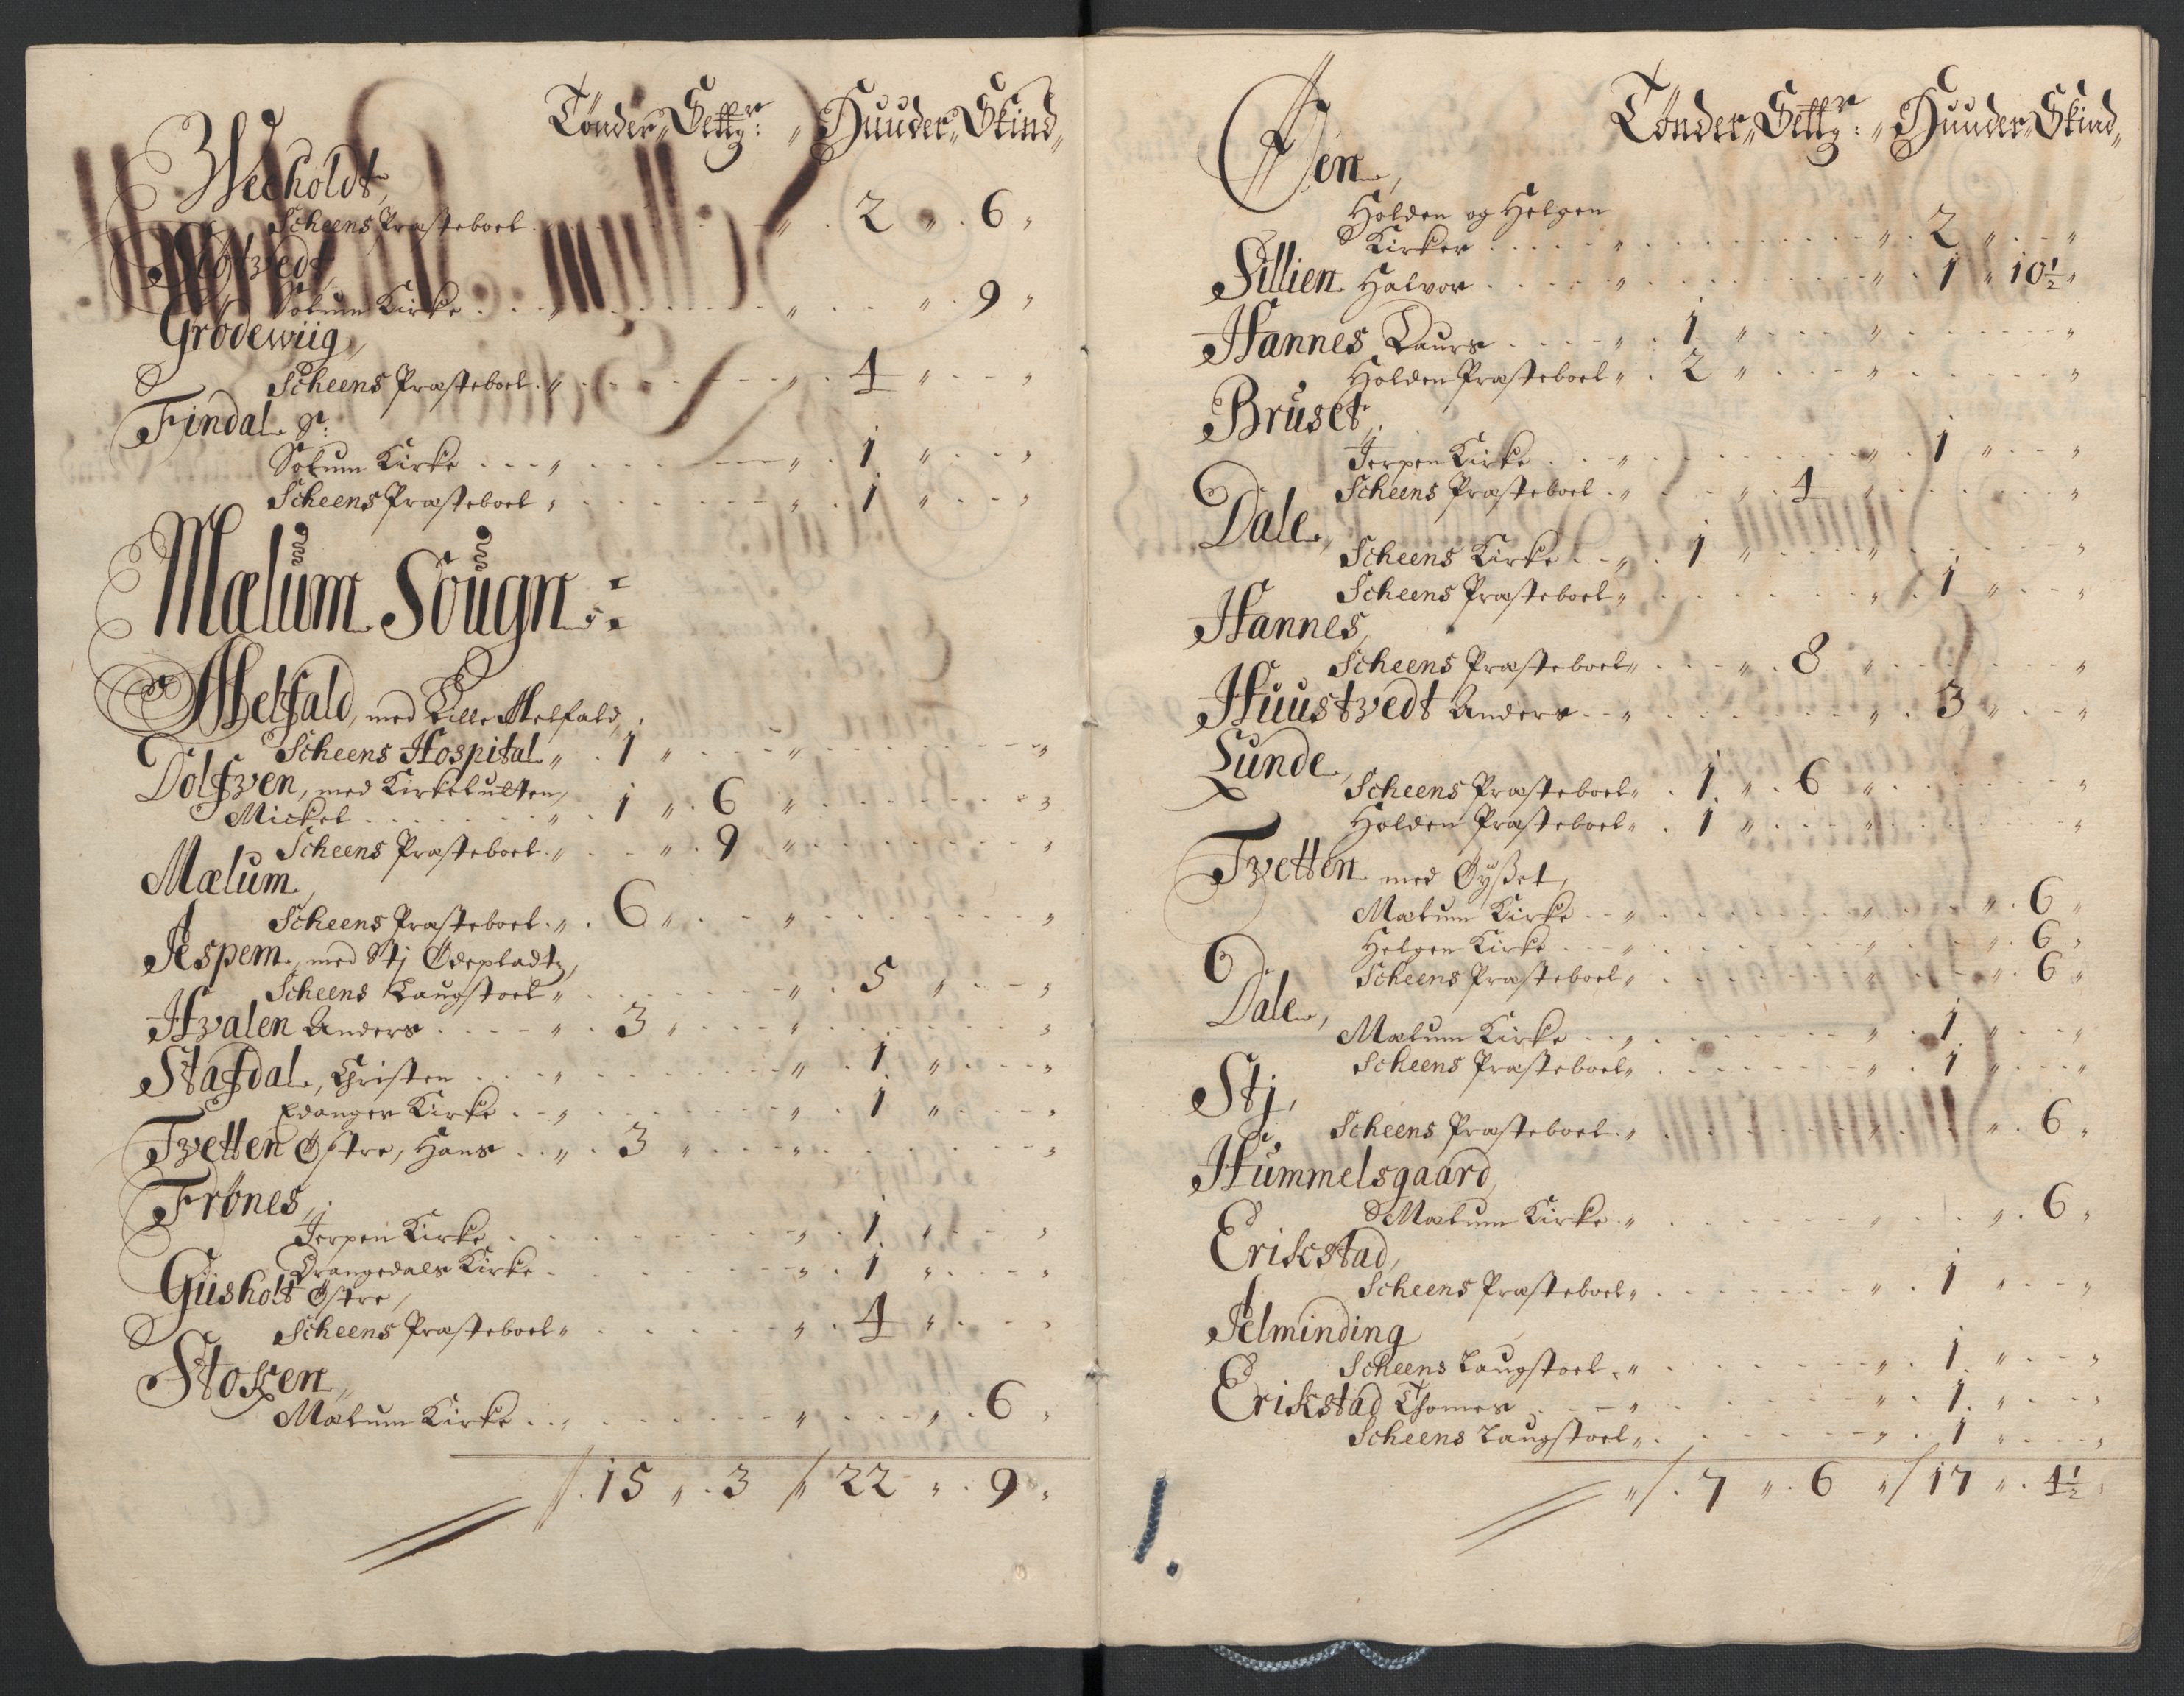 Tönder„ Setty:r „ Huuder„ Skind„
Weeholdt,
Scheens Præsteboel . . . „ . 2 „ . 6 „
Klofzvedt,
Solum Kirke . . . „ . . . „ . . . „ . 9 „
Grödewiig,
Scheens Præsteboel . „ . . . „ . 4 „ . . „
Findal
Solum Kirke . . . „ . . . „ . 1 „ . . „
Scheens Præsteboel „ . . . „ . 1 „ . . „
Mælum Sougn :
Melfald, med Lille Melfald,
Scheens Hospital „ . 1 „ . . . „ . . . „
Dolfzven, med Kirkebulten,
Mickel . . . „ . 1 „ . 6 „ . . . „
Scheens Præsteboel . „ . . „ . 9 „ . . . „
Mælum,
Scheens Præsteboel . „ . 6 „ . . „ . . . „
Aespem, med Stj Ödepladtz,
Scheens Laugstoel „ . . . „ . 5 „ . . „
Hvalen Anders . . . „ . 3 „ . . „ . . . „
Stafdal, Christen . . . „ . . . „ . 1 „ . . „
Edanger Kirke . . „ . . . „ . 1 „ . . „
Tvetten Östre, Hans . . „ . 3 „ . . „ . . . „
Frönes,
Jerpen Kirke . . . „ . 1 „ . . „
Drangedals Kirke . . . „ . 1 „ . . „
Giisholt Östre,
Scheens Præsteboel „ . . . „ . 4 „ . . „
Stoken,
Mælum Kirke . . „ . . . „ . . . „ . 6 „
/. 15 „ . 3 /„ 22 „ . 9 „
Tönder„ Setty:r „ Huuder„ Skind„
Öen,
Holden og Helgen
Kirker . . . „ . . . „ . 2 „ . . „
Sillien Halvor . . . „ . . . „ . 1 „ 10½ „
Hannes Laurs . . . „ . 1 „ . . „ . . . „
Holden Præsteboel „ . 2 „ . . „ . . . „
Bruset,
Jerpen Kirke . . „ . . . „ . 1 „ . . „
Scheens Præsteboel . „ . . „ . 4 „ . . . „
Dale,
Scheens Kirke . . „ . 1 „ . . „ . . . „
Scheens Præsteboel „ . . . „ . 1 „ . . „
Hannes,
Scheens Præsteboel „ . . „ . 8 „ . . . „
Huustvedt Anders . . „ . . . „ . 3 „ . . „
Lunde,
Scheens Præsteboel „ . 1 „ . 6 „ . . . „
Holden Præsteboel „ . 1 „ . . „ . . . „
Tvetten med Öÿset,
Mælum Kirke . . „ . . . „ . . . „ . 6 „
Helgen Kirke . . „ . . . „ . . . „ . 6 „
Scheens Præsteboel „ . . . „ . . . „ . 6 „
Dale,
Mælum Kirke . . „ . . . „ . 1 „ . . „
Scheens Præsteboel „ . . . „ . 1 „ . . „
Stj,
Scheens Præsteboel . „ . . . „ . . . „ . 6 „
Hummelsgaard,
Mælum Kirke . „ . . . „ . . . „ . 6 „
Erikstad,
Scheens Præsteboel „ . . . „ . 1 „ . . „
Aelminding
Scheens Laugstoel . „ . . . „ . 1 „ . . „
Erikstad Thomes . . „ . . . „ . 1 „ . . „
Scheens Laugstoel „ . . . „ . 1 „ . . „
„/. 7 „ . 6 „/ 17 „ . 4½ „